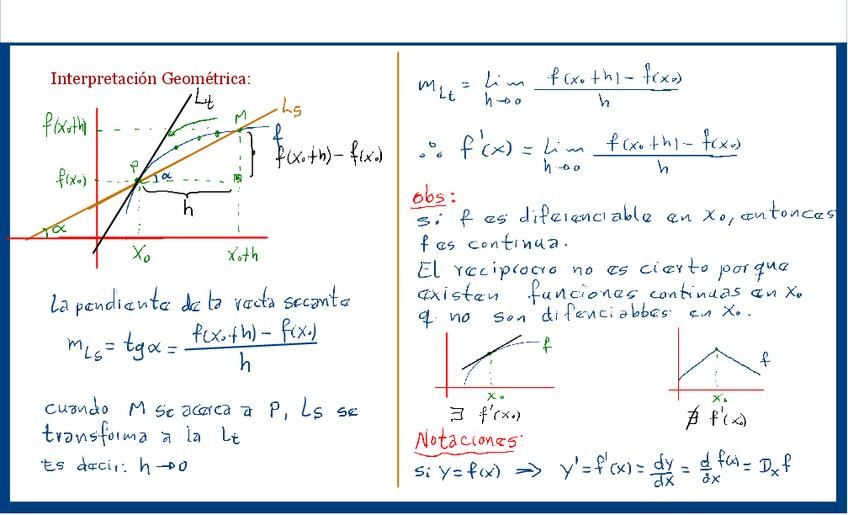 Interpretación Geométrica:
Lt
Ls
M
f(x₀+h)
f
f(x₀+h) - f(x₀)
P
f(x₀)
α
h
α
x₀
x₀+h
La pendiente de la recta secante
m_Ls = tgα = (f(x₀+h) - f(x₀)) / h
cuando M se acerca a P, Ls se
transforma a la Lt
Es decir: h→0
m_Lt = Lim h→0 (f(x₀+h) - f(x₀)) / h
∴ f'(x) = Lim h→0 (f(x₀+h) - f(x₀)) / h
obs:
si f es diferenciable en x₀, entonces
f es continua.
El reciprocro no es cierto porque
existen funciones continuas en x₀
q no son difenciabbes en x₀.
f
x₀
∃ f'(x₀)
f
x₀
∄ f'(x₀)
Notaciones:
Si y=f(x) ⇒ y'=f'(x) = dy/dx = d/dx f(x) = Dₓf